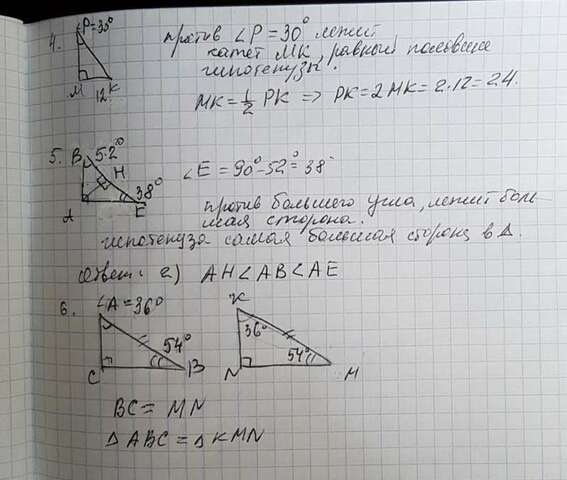 4. ∠P=30°
M 12 K
против ∠P = 30° лежит
катет MK, равный половине
гипотенузы.
MK = 1/2 PK => PK = 2MK = 2·12 = 24.
5. B 52°
H
38°
A E
∠E = 90° - 52° = 38°
против большего угла, лежит боль-
шая сторона.
гипотенуза самая большая сторона в Δ.
Ответ: AH < AB < AE
6. ∠A = 36°
54°
C B
K
36°
54°
N M
BC = MN
ΔABC = ΔKMN